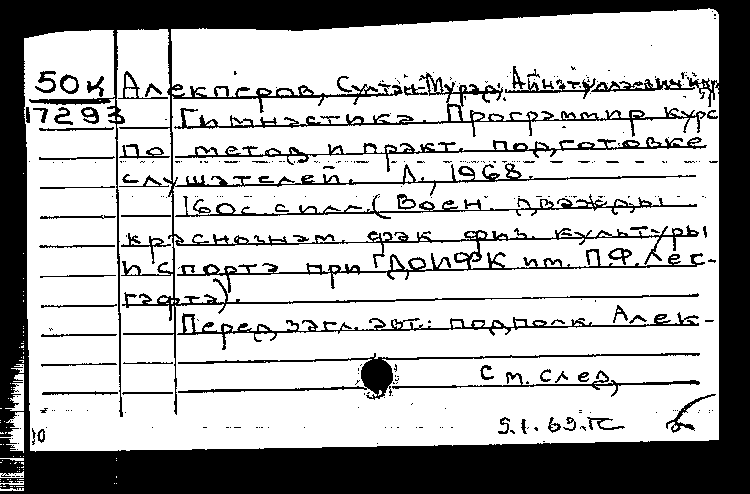 50к Алекперов, Султан-Мурад Айнатуллаевич и др.
17293 Гимнастика. Программир. курс
по метод. и практ. подготовке
слушателей. Л., 1968.
160с. с илл. (Воен. дважды
краснознам. фак. физ. культуры
и спорта при ГДОИФК им. П.Ф. Лес-
гафта).
Перед загл. авт.: подполк. Алек-
См. след.
9.1.69.
10